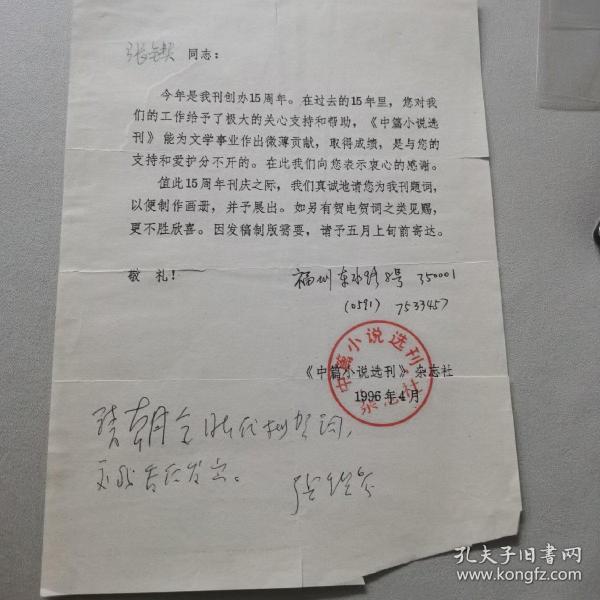 张锲 同志：
今年是我刊创办15周年。在过去的15年里，您对我
们的工作给予了极大的关心支持和帮助，《中篇小说选
刊》能为文学事业作出微薄贡献，取得成绩，是与您的
支持和爱护分不开的。在此我们向您表示衷心的感谢。
值此15周年刊庆之际，我们真诚地请您为我刊题词，
以便制作画册，并予展出。如另有贺电贺词之类见赐，
更不胜欣喜。因发稿制版需要，请予五月上旬前寄达。
敬 礼！
福州东水路8号 350001
(0591) 7533457
中篇小说选刊
杂志社
《中篇小说选刊》杂志社
1996年4月
请朝全同志代拟贺词，
孔夫子旧书网
www.kongfz.com